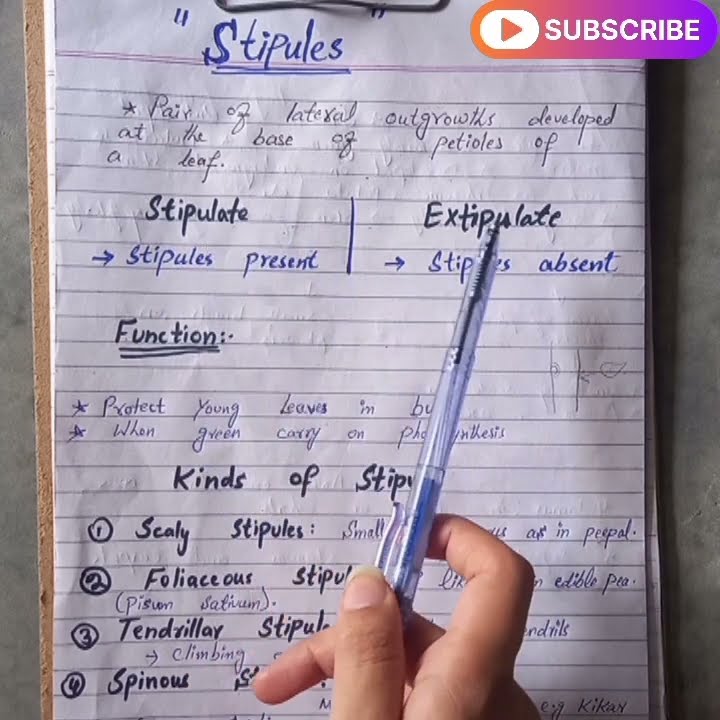 SUBSCRIBE
" Stipules "
* Pair of lateral outgrowths developed
at the base of petioles of
a leaf.
Stipulate
Extipulate
→ Stipules present
→ Stipules absent
Function:-
* Protect Young Leaves in
* When green carry on
Kinds of
① Scaly Stipules: Small as in peepal.
② Foliaceous edible pea.
(Pisum Sativum).
③ Tendrillar
→ Climbing
④ Spinous
e.g Kikar